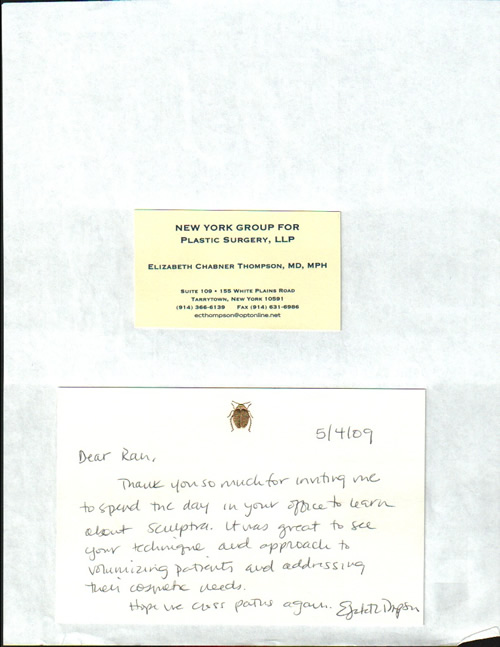 NEW YORK GROUP FOR
PLASTIC SURGERY, LLP
ELIZABETH CHABNER THOMPSON, MD, MPH
SUITE 109 • 155 WHITE PLAINS ROAD
TARRYTOWN, NEW YORK 10591
(914) 366-6139 FAX (914) 631-6986
ecthompson@optonline.net
5/4/09
Dear Ran,
Thank you so much for inviting me
to spend the day in your office to learn
about Sculptra. It was great to see
your technique and approach to
volumizing patients and addressing
their cosmetic needs.
Hope we cross paths again.